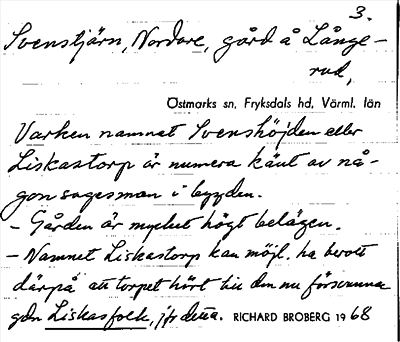 3.
Svenstjärn, Nordare, gård å Långe-
rud,
Östmarks sn, Fryksdals hd, Värml. län
Varken namnet Svenshöjden eller
Liskastorp är numera känt av nå-
gon sagesman i bygden.
- Gården är mycket högt belägen.
- Namnet Liskastorp kan möjl. ha berott
därpå att torpet hört till den nu försvunna
gdn Liskasfolk, jfr detta. RICHARD BROBERG 1968